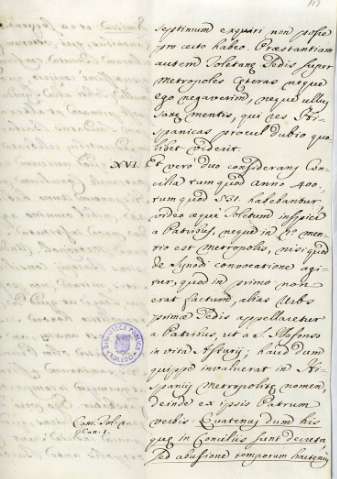 septimum exquiri non posse
pro certo habeo. Præstantiam
autem Toletanæ Sedis super
Metropoles cæteras neque
ego negaverim, neque ullus
sanæ mentis, qui res His-
panicas procul dubio quo-
libet viderit.
XVI. Et vero duo considerans Con-
cilia tum quod anno 400.
tum quod 531. habebantur
video æque Toletum inspici
a Patribus, neque in
est Metropolis, nisi quod
de Synodi convocatione agi-
tur, quod in primo non
erat factum, alias Urbs
primæ Sedis appellaretur
a Patribus, ut a S. Ildefonso
in vita Asturii; haud dum
quippe involuerat in His-
paniis Metropolis nomen,
deinde ex ipsis Patrum
verbis
quæ in Conciliis sunt decreta,
sed abusione temporum hactenus